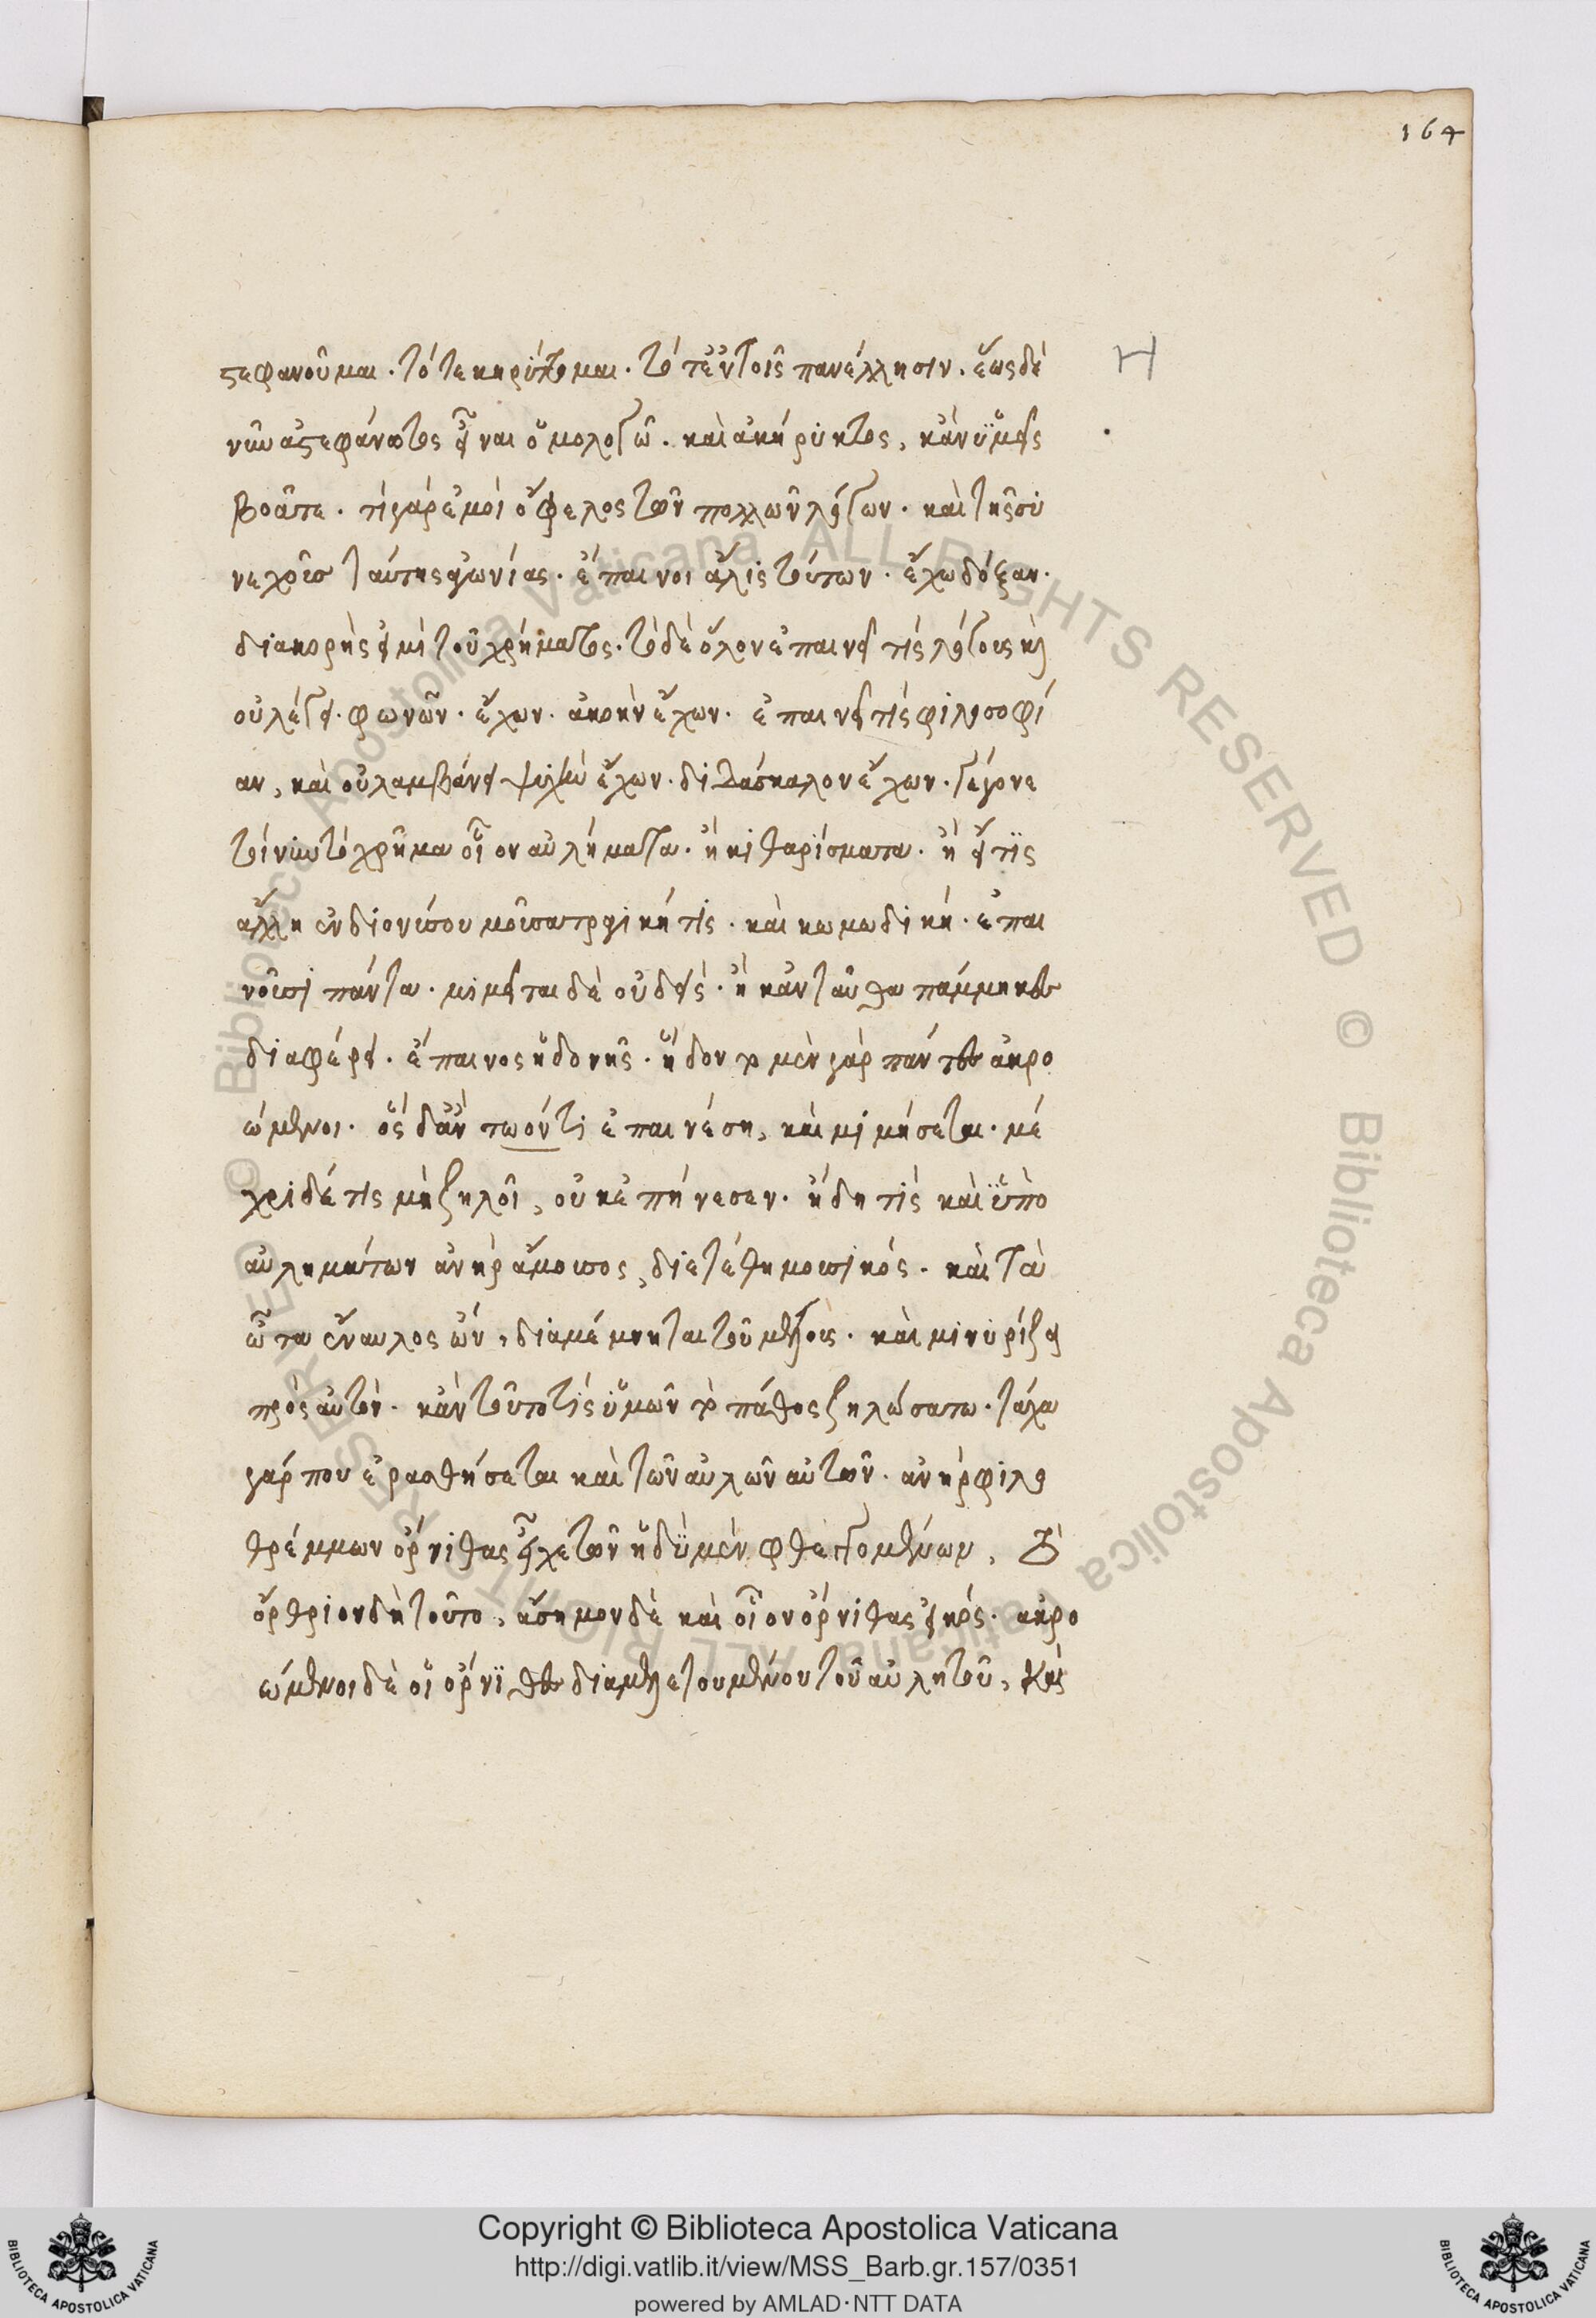 164
στεφανοῦμαι. τότε κηρύττομαι. τότε ἐν τοῖς πανέλλησιν. ἕως δὲ
Η
νῦν ἀστεφάνωτος εἶναι ὁμολογῶ. καὶ ἀκήρυκτος, κἂν ὑμεῖς
βοᾶτε. τί γάρ ἐμοὶ ὄφελος τῶν πολλῶν λόγων. καὶ τῆς συ
νεχοῦς ταύτης ἀγωνίας. ἔπαινοι ἅλις τούτων. ἔχω δόξαν.
διακορὴς εἰμὶ τοῦ χρήματος. τὸ δὲ ὅλον ἐπαινεῖ τίς λόγους καὶ
οὐ λέγει. φωνὴν ἔχων. ἀκοὴν ἔχων. ἐπαινεῖ τίς φιλοσοφί
αν, καὶ οὐ λαμβάνει ψυχὴν ἔχων. διδάσκαλον ἔχων. γέγονε
τοίνυν τὸ χρῆμα οἷον αὐλήματα. ἢ κιθαρίσματα. ἢ εἴ τις
ἄλλη ἐν διονύσου μοῦσα τραγικήτις. καὶ κωμωδική. ἐπαι
νοῦσι πάντα. μιμεῖται δὲ οὐδείς. ἢ κἀνταῦθα πάμμηκες
διαφέρει. ἔπαινος ἡδονῆς. ἥδονται μὲν γάρ πάντες ἀκρο
ώμενοι. ὃς δ' ἂν τωόντι ἐπαινέση, καὶ μιμήσεται. μέ
χρι δέ τις μὴ ζηλοῖ, οὐκ ἐπήνεσεν. ἤδη τίς καὶ ὑπὸ
αὐλημάτων ἀνὴρ ἄμουσος, διετέθη μουσικός. καὶ τὰ
ὦτα ἔναυλος ὤν, διαμέμνηται τοῦ μέλους. καὶ μινυρίζει
πρὸς αὐτόν. κἂν τοῦτο τίς ὑμῶν τὸ πάθος ζηλωσάτω. τάχα
γάρ που ἐρασθήσεται καὶ τῶν αὐλῶν αὐτῶν. ἀνὴρ φιλο
θρέμμων ὄρνιθας εἶχε τῶν ἡδὺ μὲν φθεγγομένων, τὸ
ὄρθριον δὴ τοῦτο, ἄσημον δὲ καὶ οἷον ὄρνιθας εἰκός. ἀκρο
ώμενοι δὲ οἱ ὄρνιθες διαμελετουμένου τοῦ αὐλητοῦ,
Copyright © Biblioteca Apostolica Vaticana
http://digi.vatlib.it/view/MSS_Barb.gr.157/0351
powered by AMLAD·NTT DATA
BIBLIOTECA APOSTOLICA VATICANA
BIBLIOTECA APOSTOLICA VATICANA
© Biblioteca Apostolica Vaticana ALL RIGHTS RESERVED © Biblioteca Apostolica Vaticana ALL RIGHTS RESERVED